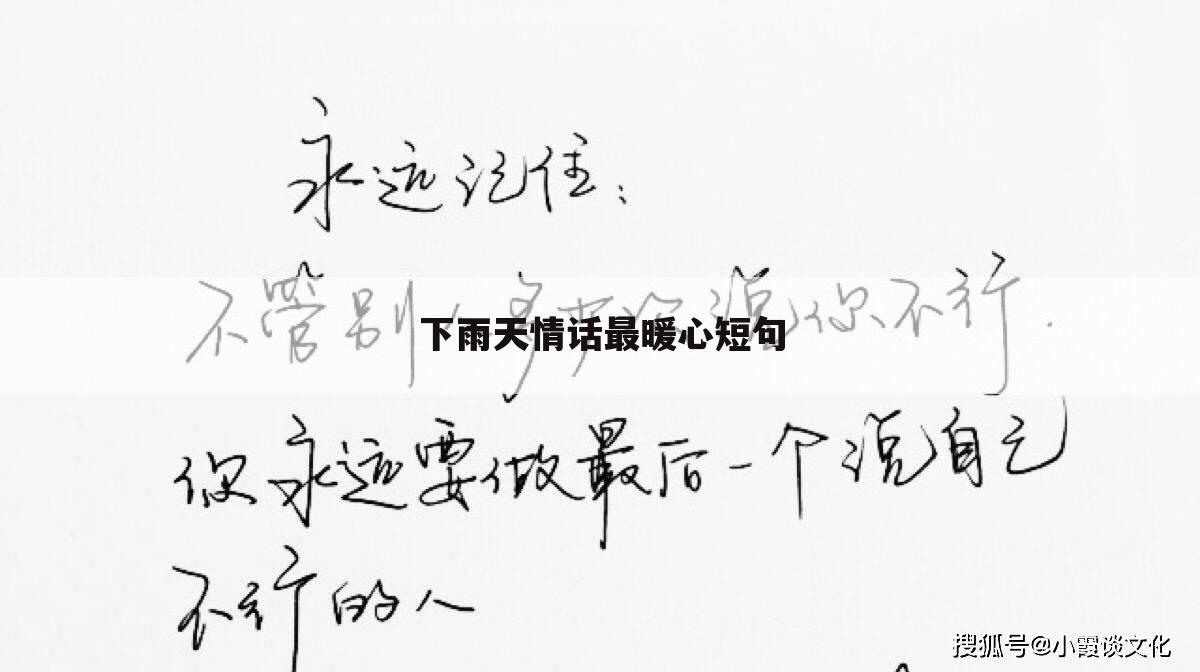 永远记住：
不管别人多少次说你不行.
下雨天情话最暖心短句
你永远要做最后一个说自己
不行的人
搜狐号@小霞谈文化